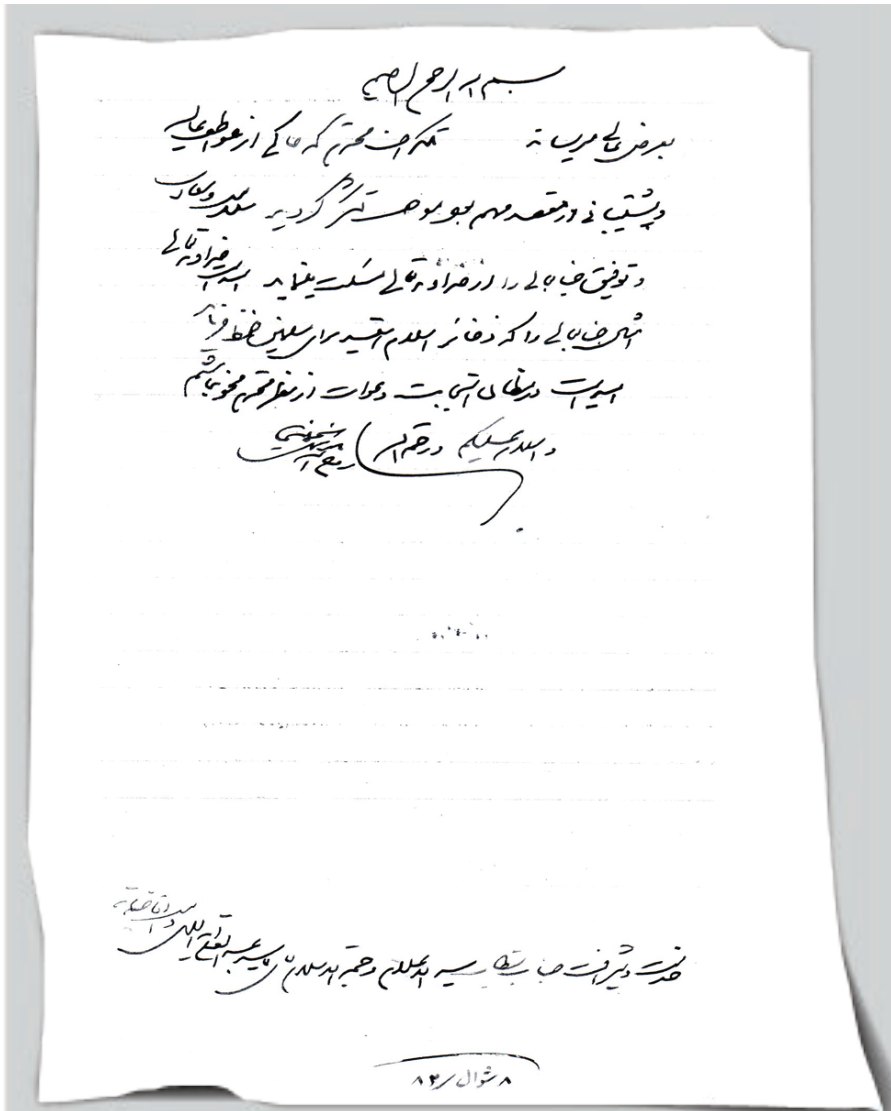 بسم الله الرحمن الرحیم
بعرض عالی میرساند تلگراف محترم که حاکی از عواطف عالیه
و پشتیبانی در مقصد مهم بود موجب تشکر گردید سلامت و سعادت
و توفیق جنابعالی را از خداوند تعالی مسئلت مینماید امید است خداوند تعالی
امثال جنابعالی را که ذخائر اسلام هستید برای مسلمین حفظ فرماید
امید است در مظان استجابت دعوات از نظر محترم محو نباشم
والسلام علیکم ورحمة الله روح الله الموسوی الخمینی
خدمت ذیشرافت جناب مستطاب سید الاعلام و حجة الاسلام آقای
دامت افاضاته
۸ شوال ۸۳